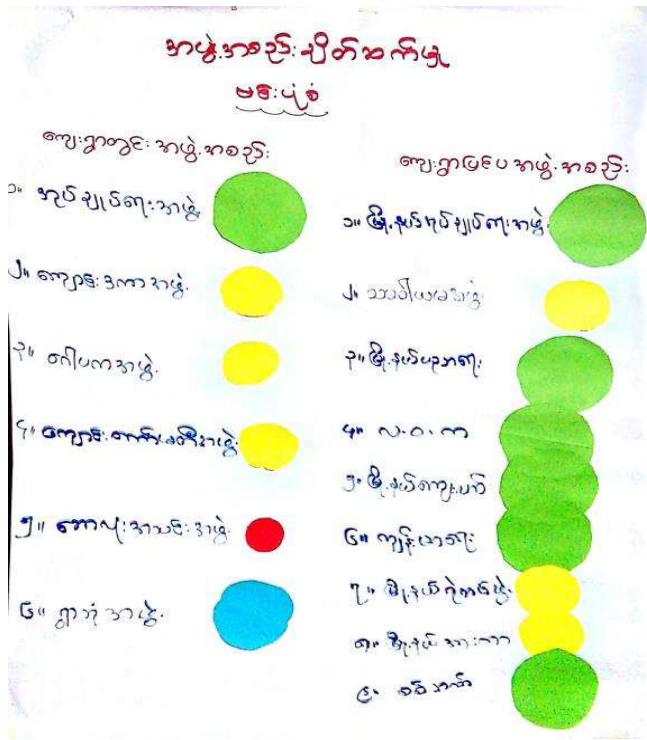 အဖွဲ့အစည်းချိတ်ဆက်မှု
မြေပုံစံ
ကျေးရွာတွင်းအဖွဲ့အစည်း
၁။ အုပ်ချုပ်ရေးအဖွဲ့
၂။ ကျောင်းဒကာအဖွဲ့
၃။ ဂေါပကအဖွဲ့
၄။ ကျောင်းကော်မတီအဖွဲ့
၅။ ဘောလုံးအသင်းအဖွဲ့
၆။ ရွာဘုံအဖွဲ့
ကျေးရွာပြင်ပအဖွဲ့အစည်း
၁။ မြို့နယ်အုပ်ချုပ်ရေးအဖွဲ့
၂။
၃။ မြို့နယ်ပညာရေး
၄။ လ.ဝ.က
၅။ မြို့နယ်ကျေးလက်
၆။ ကျန်းမာရေး
၇။ မြို့နယ်ရဲတပ်ဖွဲ့
၈။ မြို့နယ်အားကစား
၉။